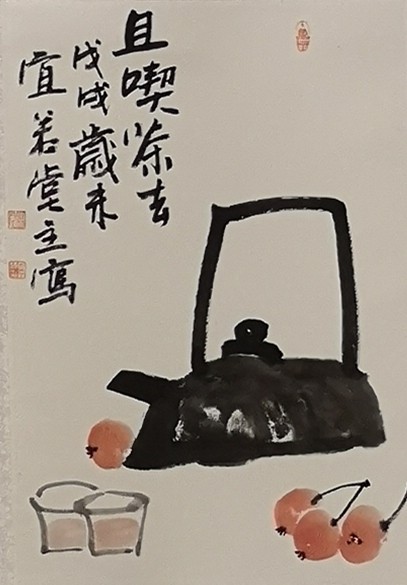 且喫茶去
戊戌歲末
宜若堂主寫